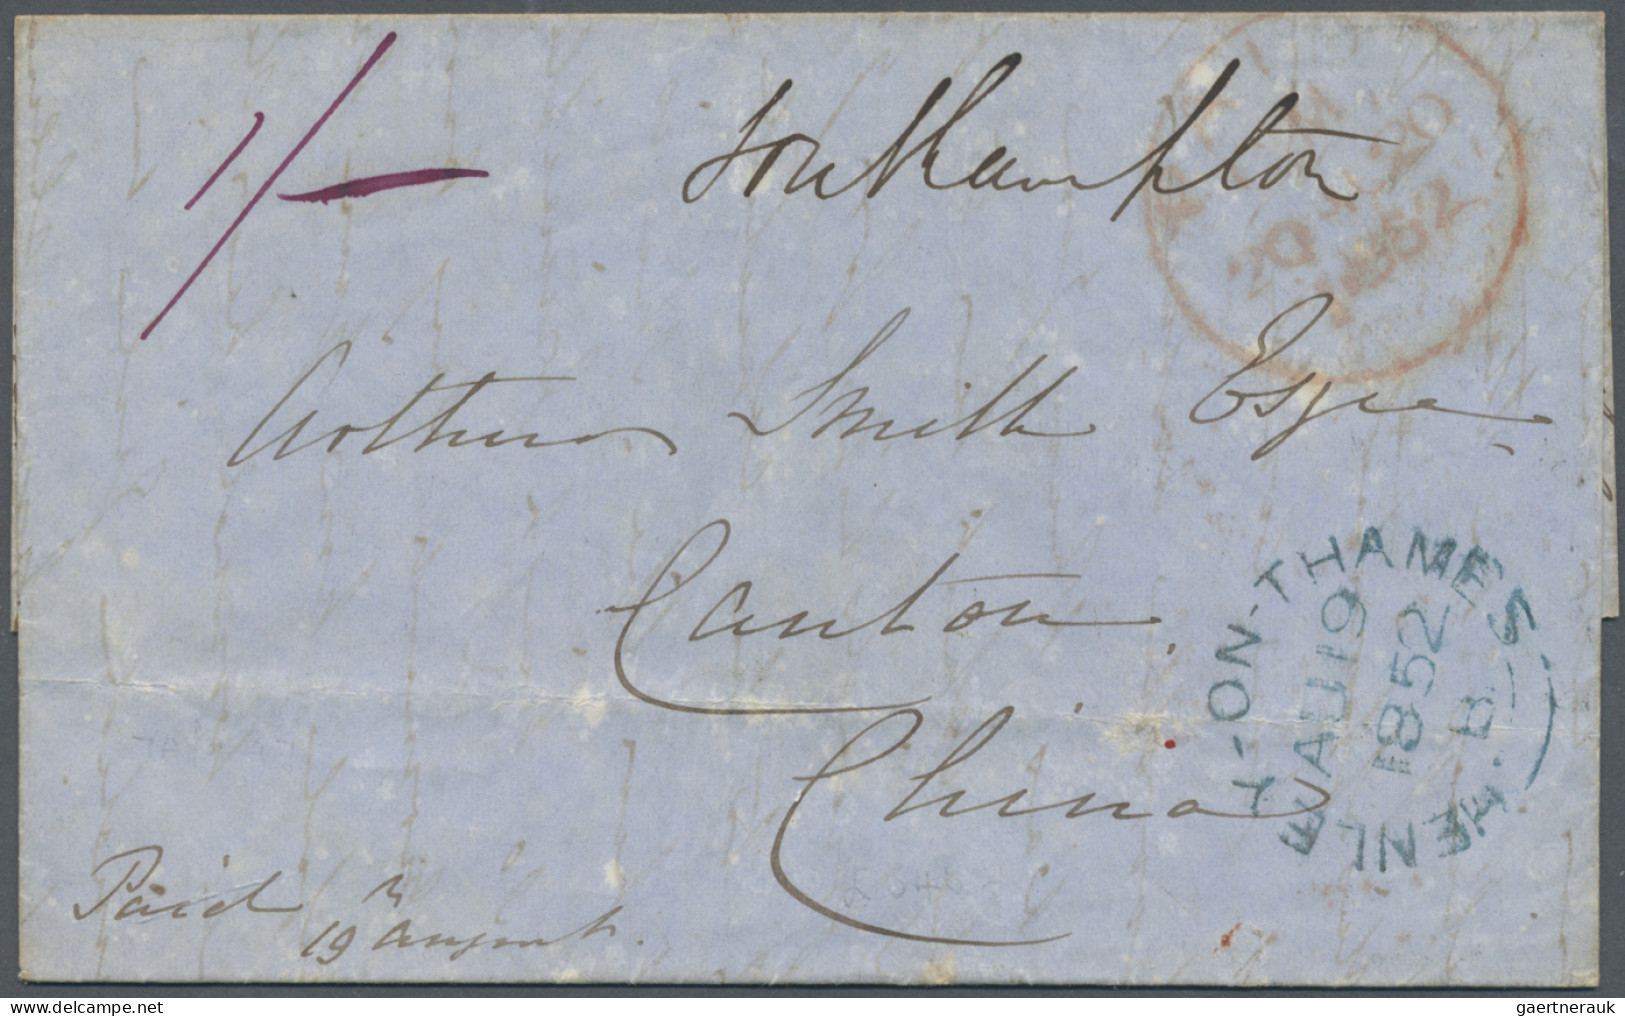 1/-
Southampton
PAID
20 AU 20
1852
Arthur Smith Esqre
Canton
China
HENLEY-ON-THAMES
AU 19
1852
B
Paid
19 August
gaertnerauk